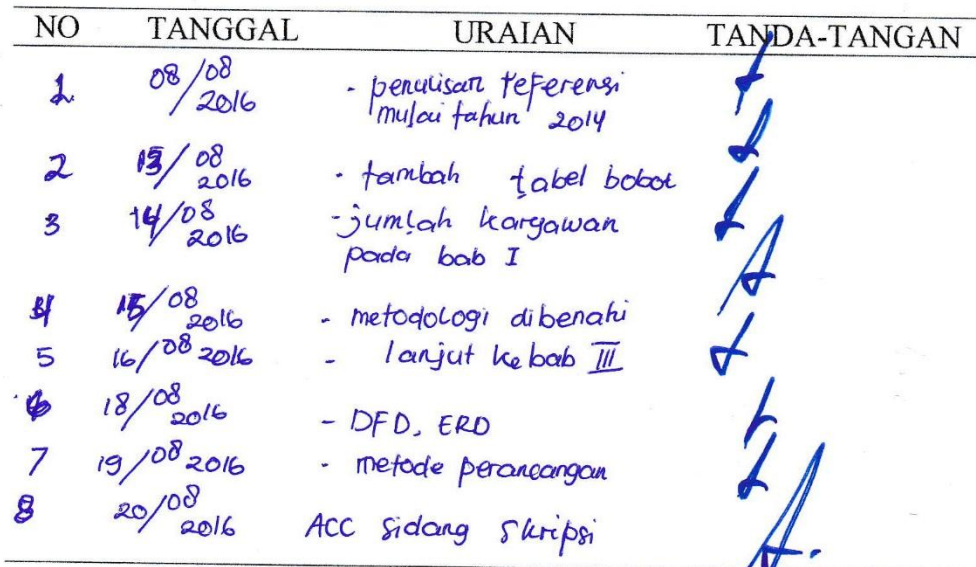 NO TANGGAL URAIAN TANDA-TANGAN
1 08/08 2016 - penulisan referensi
mulai tahun 2014
2 13/08 2016 - tambah tabel bobot
3 14/08 2016 - jumlah karyawan
pada bab I
4 15/08 2016 - metodologi dibenahi
5 16/08 2016 - lanjut ke bab III
6 18/08 2016 - DFD, ERD
7 19/08 2016 - metode perancangan
8 20/08 2016 ACC sidang skripsi